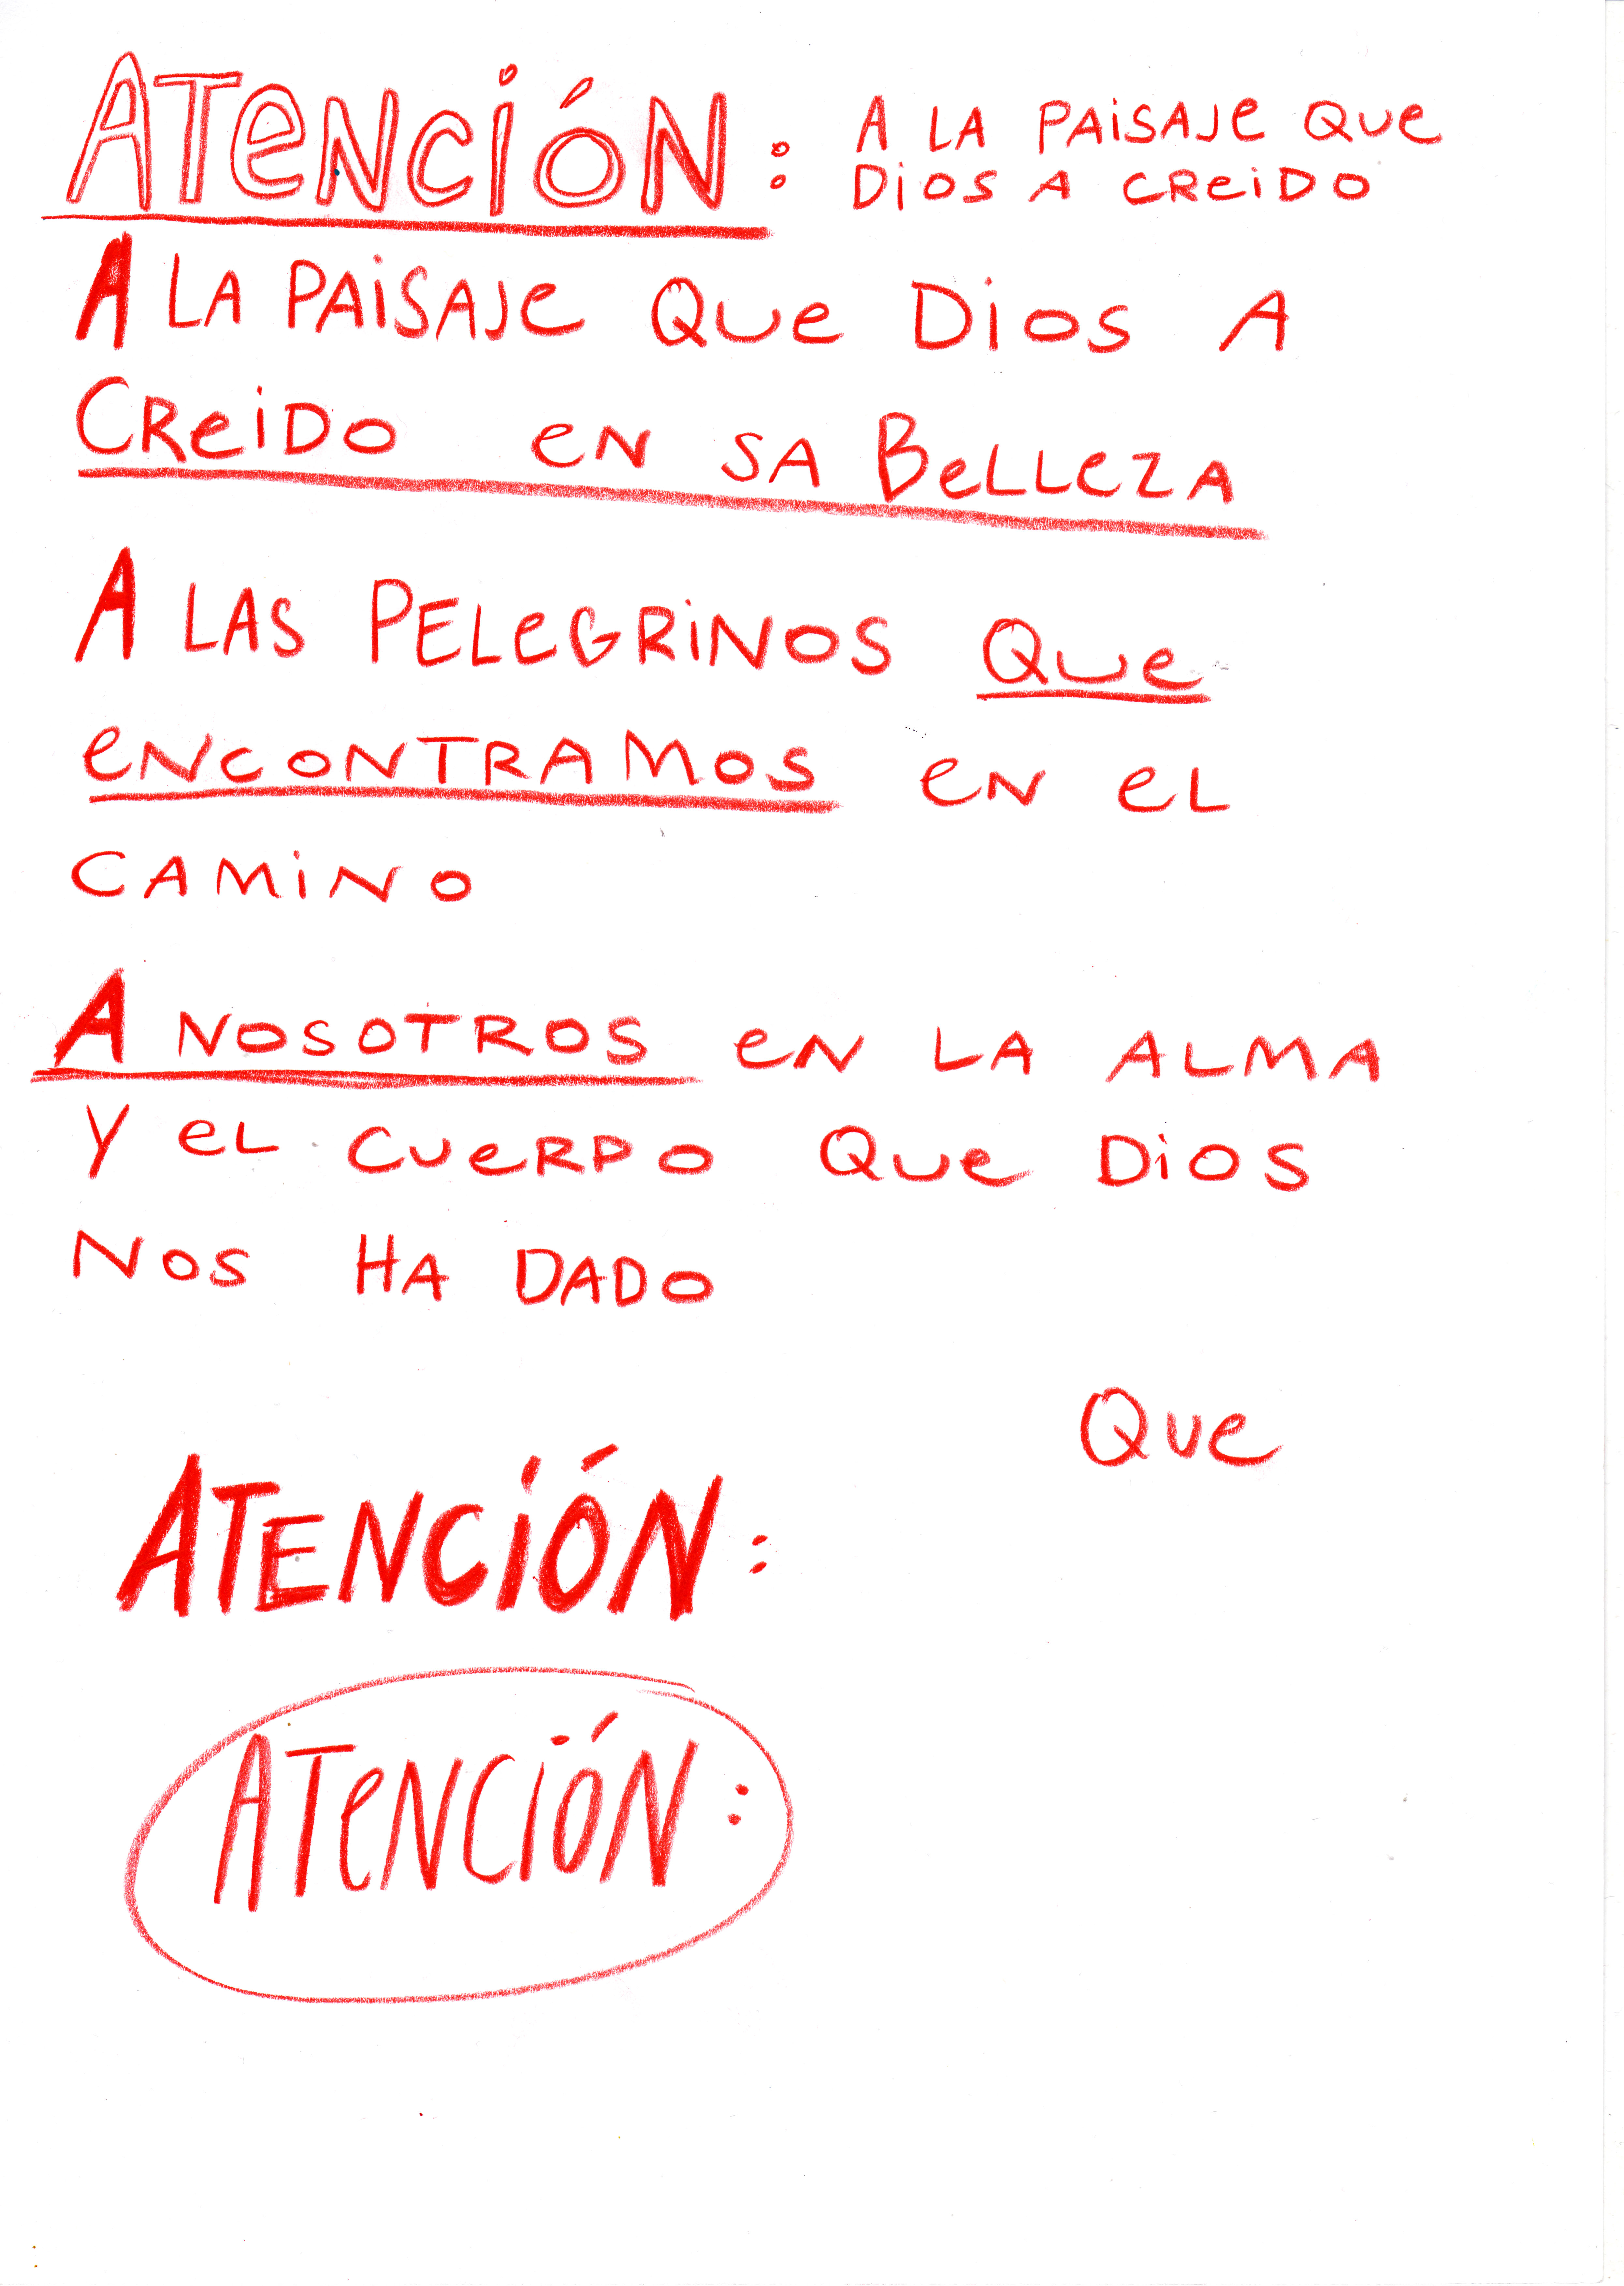 ATeNCiÓN: A LA PAiSAJe Que
DiOS A CReiDO
A LA PAiSAJe Que DiOS A
CReiDO eN SA BeLLeZA
A LAS PELeGRiNOS Que
eNCONTRAMOS eN eL
CAMiNO
A NOSOTROS eN LA ALMA
Y eL CUeRPO Que DiOS
NOS HA DADO
Que
ATENCiÓN:
ATeNCiÓN: